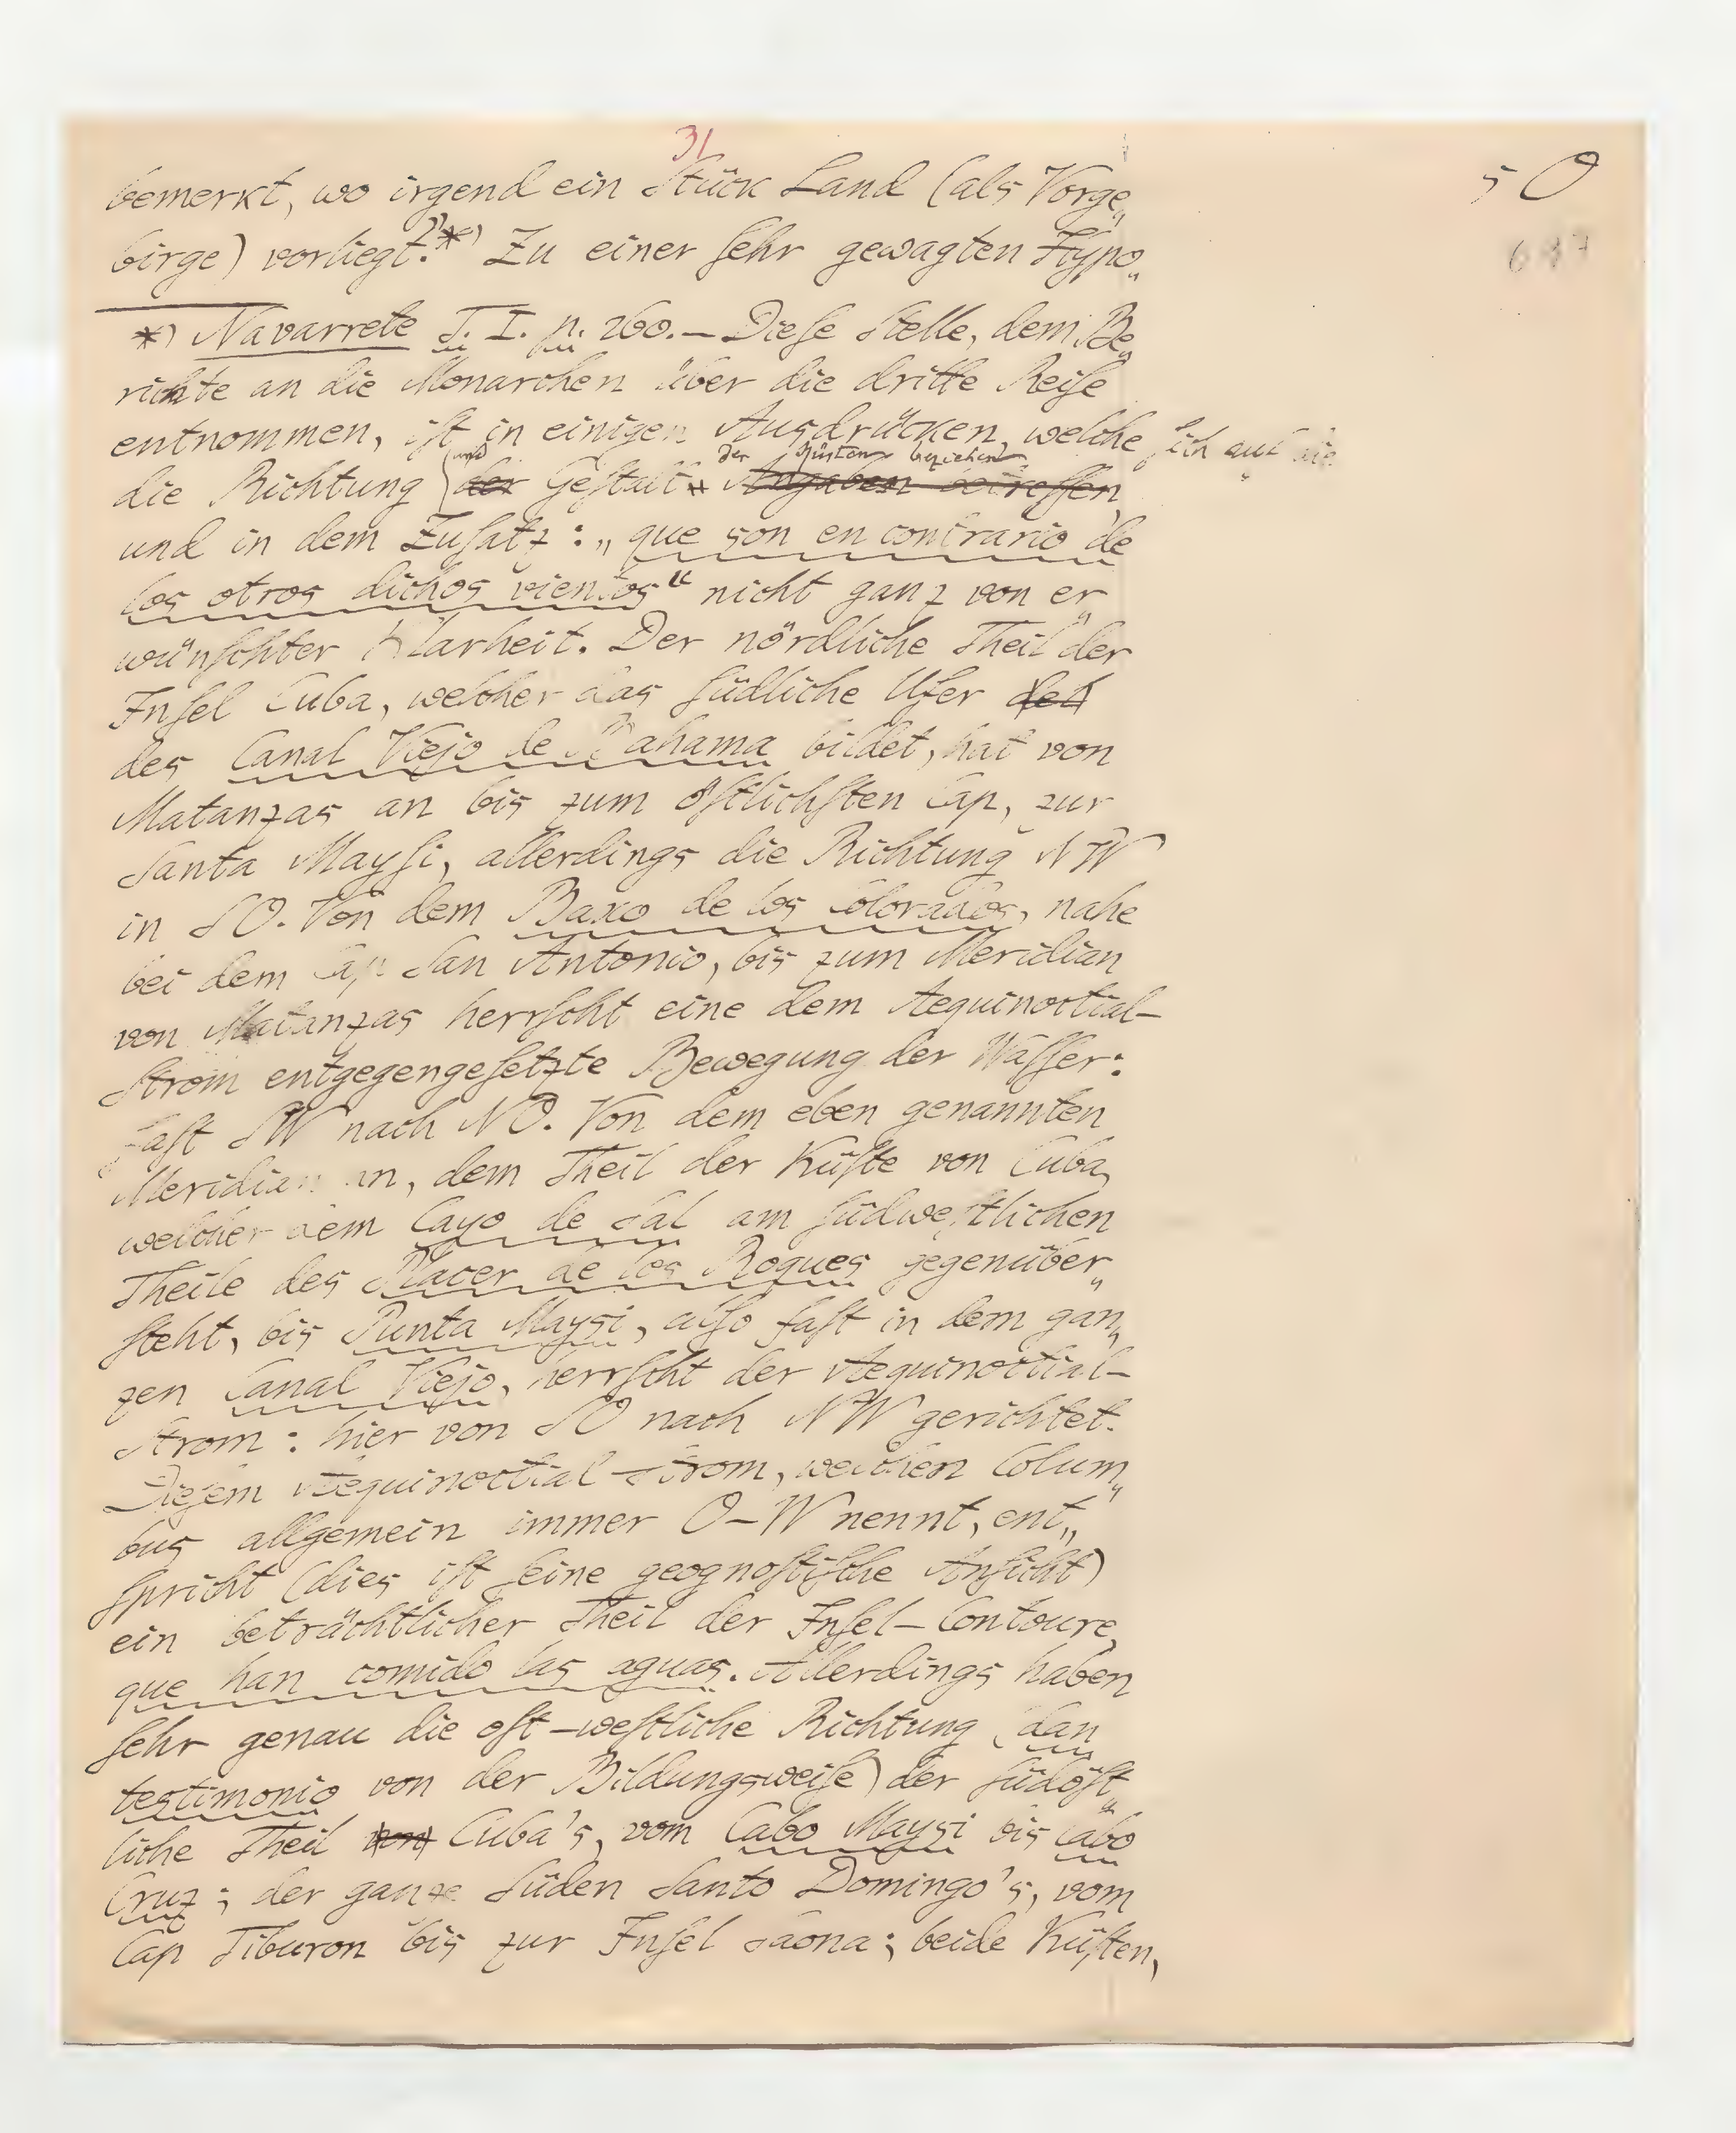 31
50
687
bemerkt, wo irgend ein Stück Land (als Vorge„
birge) vorliegt."*) Zu einer sehr gewagten Hypo„
*) Navarrete T. I. p. 260. — Diese Stelle, dem Be„
richte an die Monarchen über die dritte Reise
entnommen, ist in einigen Ausdrücken, welche sich auf die
und der Küsten beziehen
die Richtung der Gestalt Angaben betreffen,
und in dem Zusatz: „que son en contrario de
los otros dichos vientos“ nicht ganz von er„
wünschter Klarheit. Der nördliche Theil der
Insel Cuba, welcher das südliche Ufer des
des Canal Viejo de Bahama bildet, hat von
Matanzas an bis zum östlichsten Cap, zur
Santa Maysi, allerdings die Richtung NW
in SO. Von dem Baxo de los Colorados, nahe
bei dem Cap San Antonio, bis zum Meridian
von Matanzas herrscht eine dem Aequinoctial-
Strom entgegengesetzte Bewegung der Wasser:
fast SW nach NO. Von dem eben genannten
Meridian an, dem Theil der Küste von Cuba,
welcher dem Cayo de Sal am südwestlichen
Theile des Placer de los Roques gegenüber„
steht, bis Punta Maysi, also fast in dem gan„
zen Canal Viejo, herrscht der Aequinoctial-
Strom: hier von SO nach NW gerichtet.
Diesem Aequinoctial-Strom, welchen Colum„
bus allgemein immer O–W nennt, ent„
spricht (dies ist seine geognostische Ansicht)
ein beträchtlicher Theil der Insel-Contoure,
que han comido las aguas. Allerdings haben
sehr genau die ost-westliche Richtung (dan
testimonio von der Bildungsweise) der südöst„
liche Theil von Cuba's, vom Cabo Maysi bis Cabo
Cruz; der ganze Süden Santo Domingo's, vom
Cap Tiburon bis zur Insel Saona; beide Küsten,